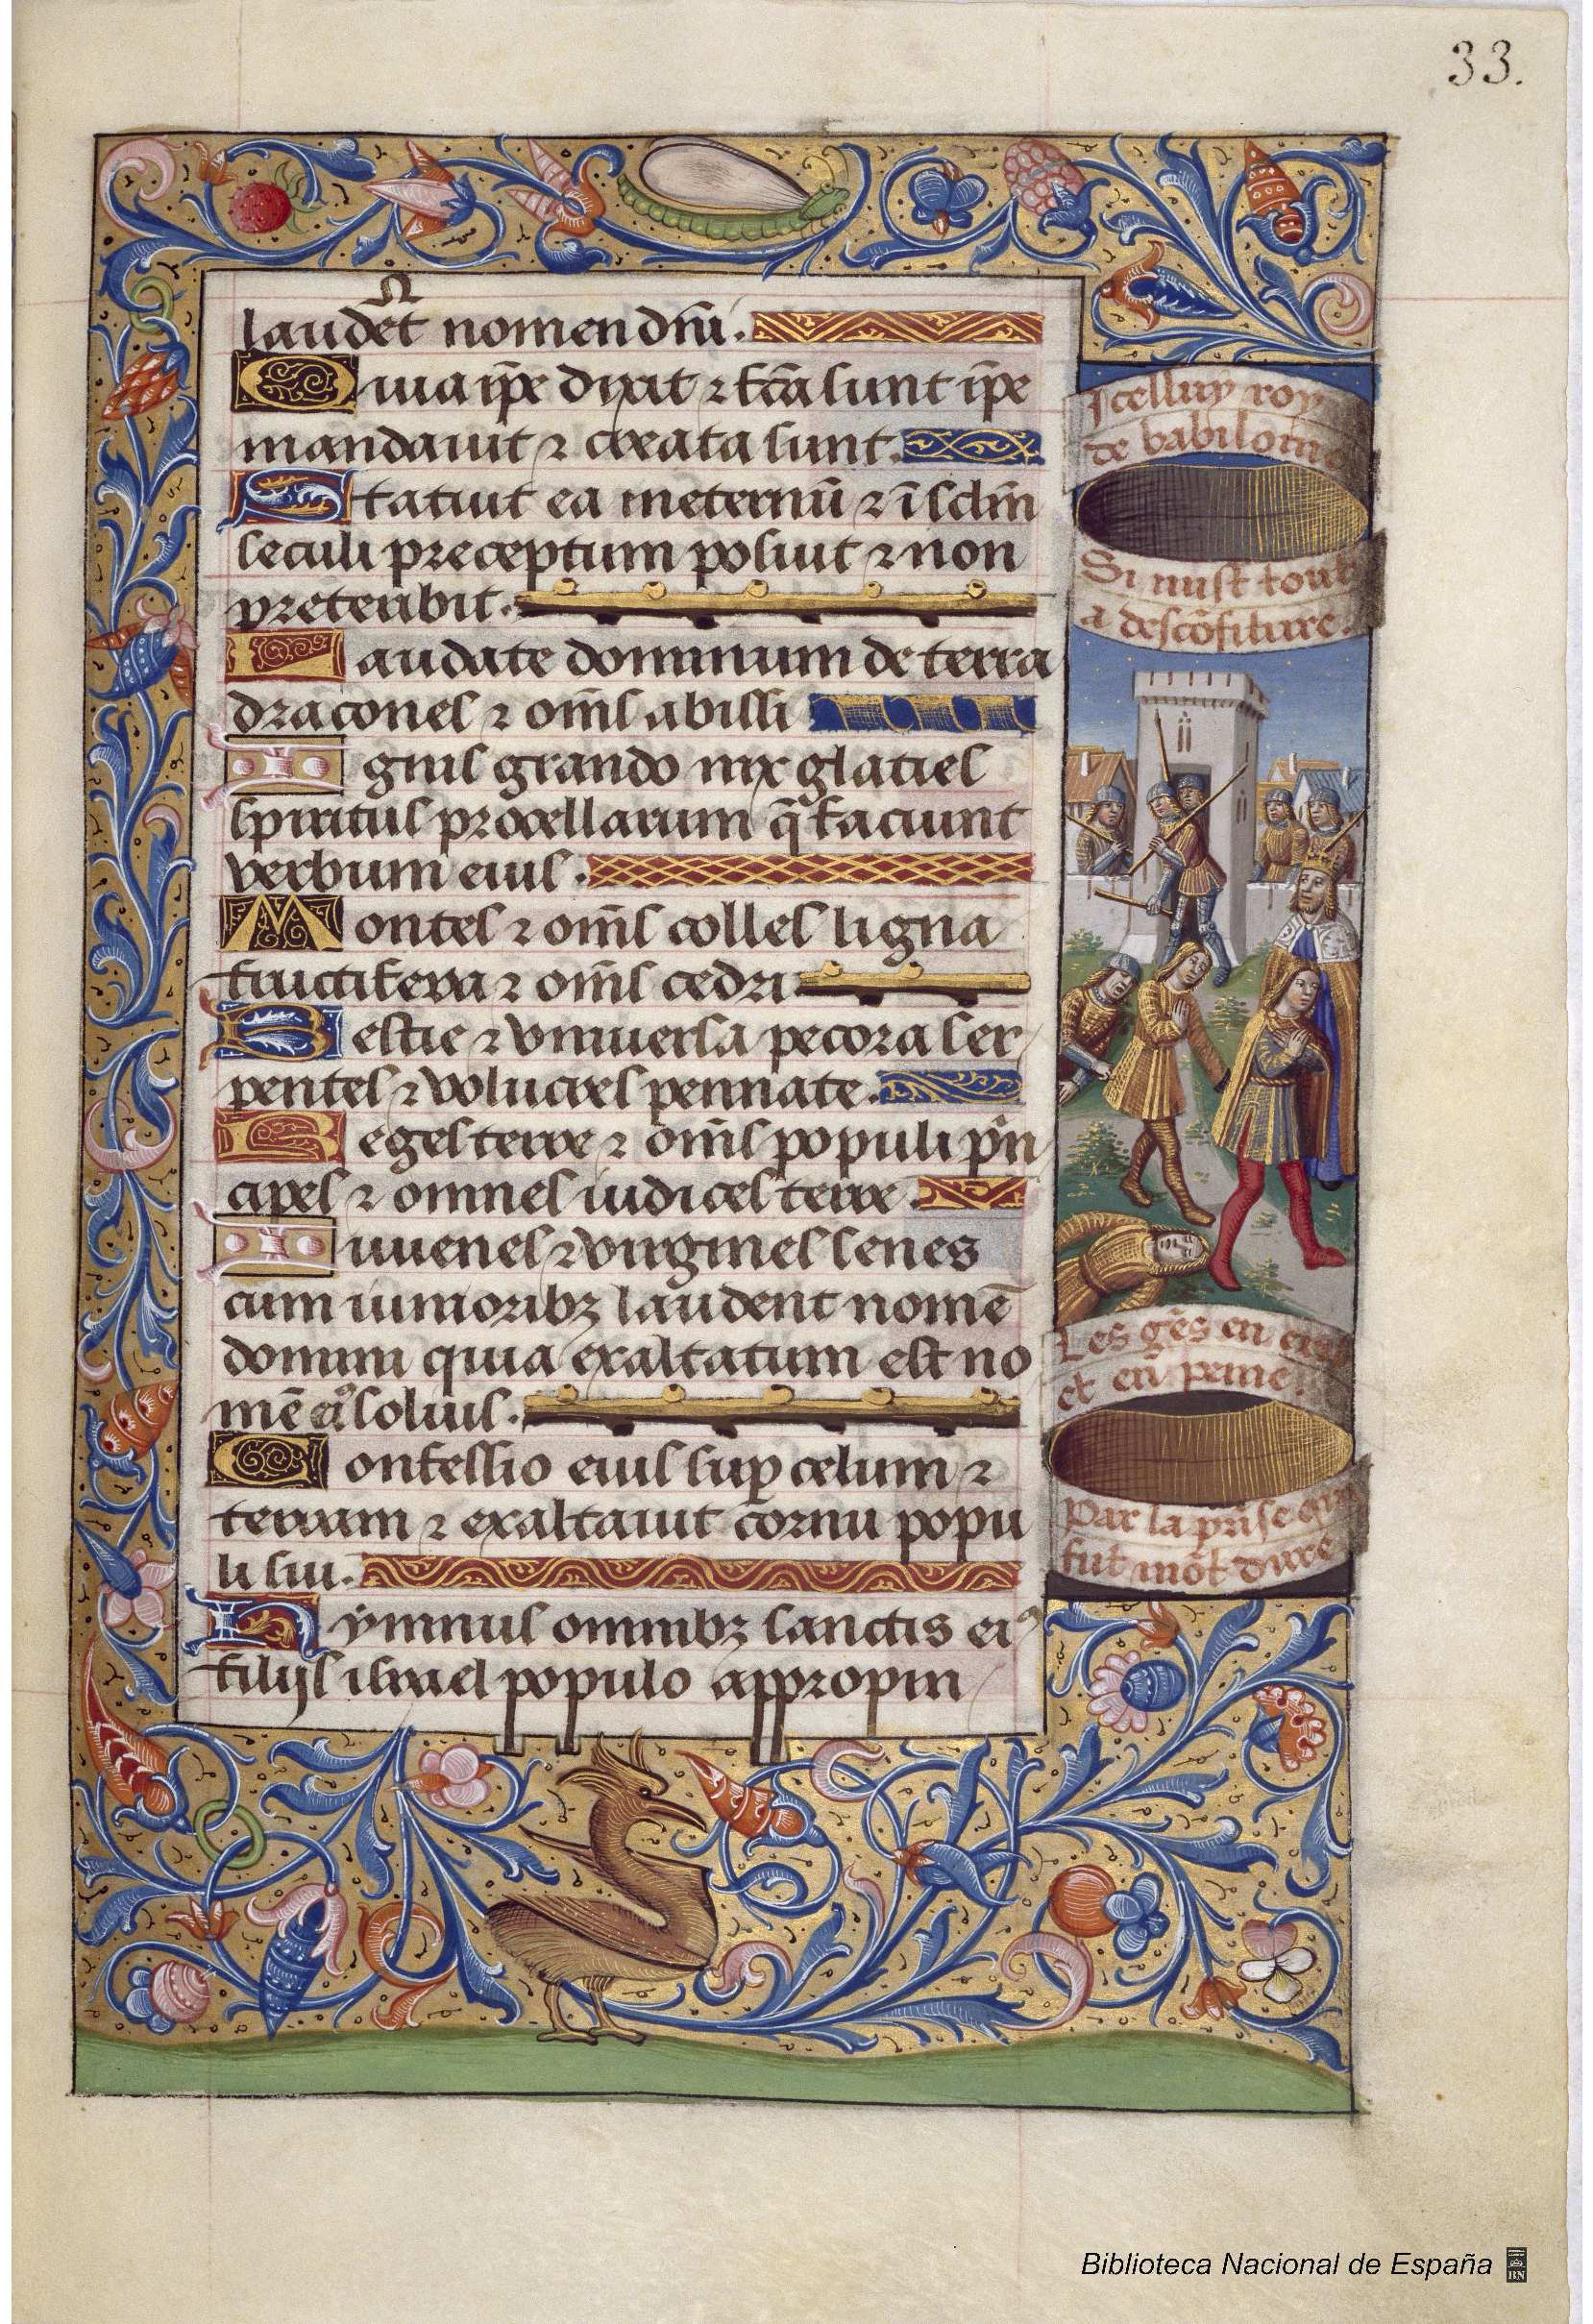 33.
laudēt nomen dn̄i.
Quia ip̄e dixit ⁊ fc̄a sunt ip̄e
mandauit ⁊ creata sunt.
Statuit ea in eternū ⁊ ī sclm̄
seculi preceptum posuit ⁊ non
preteribit.
Laudate dominum de terra
dracones ⁊ om̄s abissi
Ignis grando nix glacies
spiritus procellarum q̄ faciunt
verbum eius.
Montes ⁊ om̄s colles ligna
fructifera ⁊ om̄s cedri
Bestie ⁊ vniuersa pecora ser
pentes ⁊ volucres pennate.
Reges terre ⁊ om̄s populi prin
cipes ⁊ omnes iudices terre.
Iuuenes ⁊ virgines senes
cum iunioribꝫ laudent nomē
domini quia exaltatum est no
mē eiꝰ solius.
Confessio eius suꝑ celum ⁊
terram ⁊ exaltauit cornu popu
li sui.
Hymnus omnibꝫ sanctis eiꝰ
filijs israel populo appropin
Icelluy roy
de babiloine
Si mist tout
a descōfiture.
Les gēs en
et en peine.
Par la prise qui
fut mōt dure
Biblioteca Nacional de España
BN